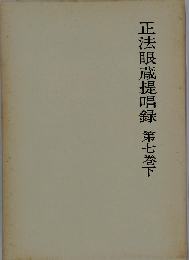 正法眼蔵提唱録 第七巻下